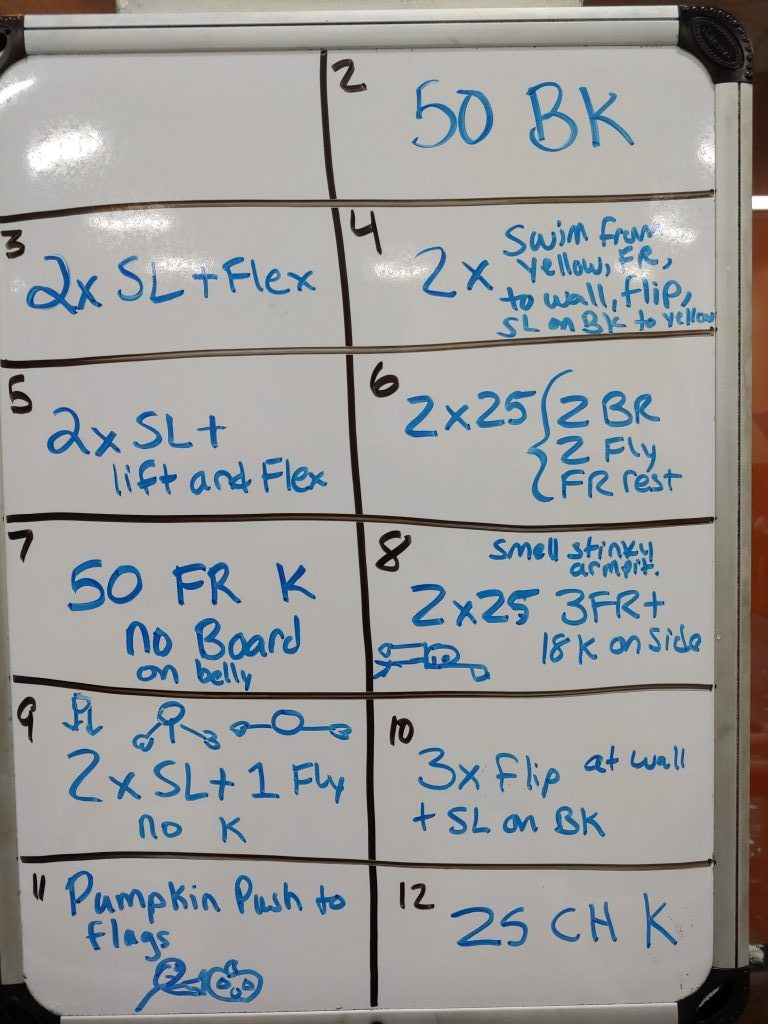 2
50 BK
3
2x SL + Flex
4
2x Swim from
yellow, FR,
to wall, flip,
SL on BK to yellow
5
2x SL +
lift and Flex
6
2 x 25 { 2 BR
2 Fly
FR rest
7
50 FR K
no Board
on belly
8
smell stinky
armpit.
2 x 25 3FR +
18 K on Side
9
2 x SL + 1 Fly
no K
10
3x Flip at wall
+ SL on BK
11
Pumpkin Push to
flags
12
25 CH K